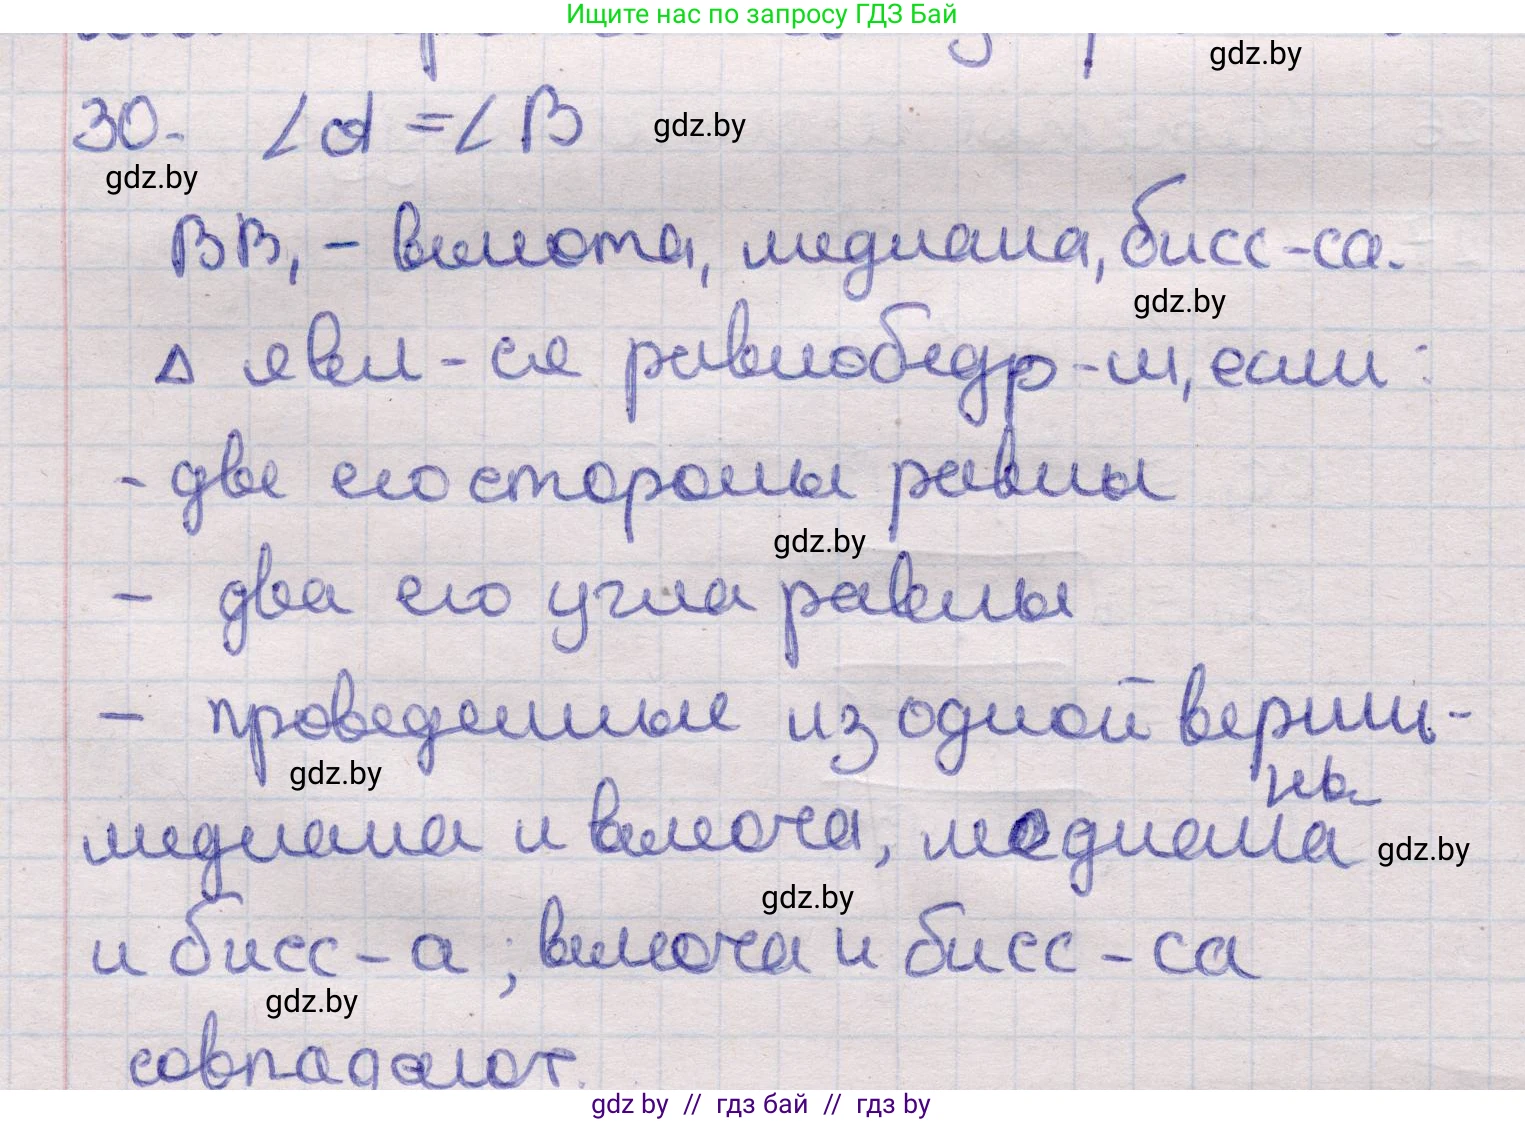 Ищите нас по запросу ГДЗ Бай
gdz.by
30. ∠α = ∠B
gdz.by
gdz.by
BB₁ – высота, медиана, бисс-са.
gdz.by
Δ явл-ся равнобедр-м, если:
- две его стороны равны
gdz.by
- два его угла равны
- проведенные из одной верши-
ны
gdz.by
медиана и высота, медиана
gdz.by
gdz.by
и бисс-а; высота и бисс-са
gdz.by
совпадают.
gdz by // гдз бай // гдз by